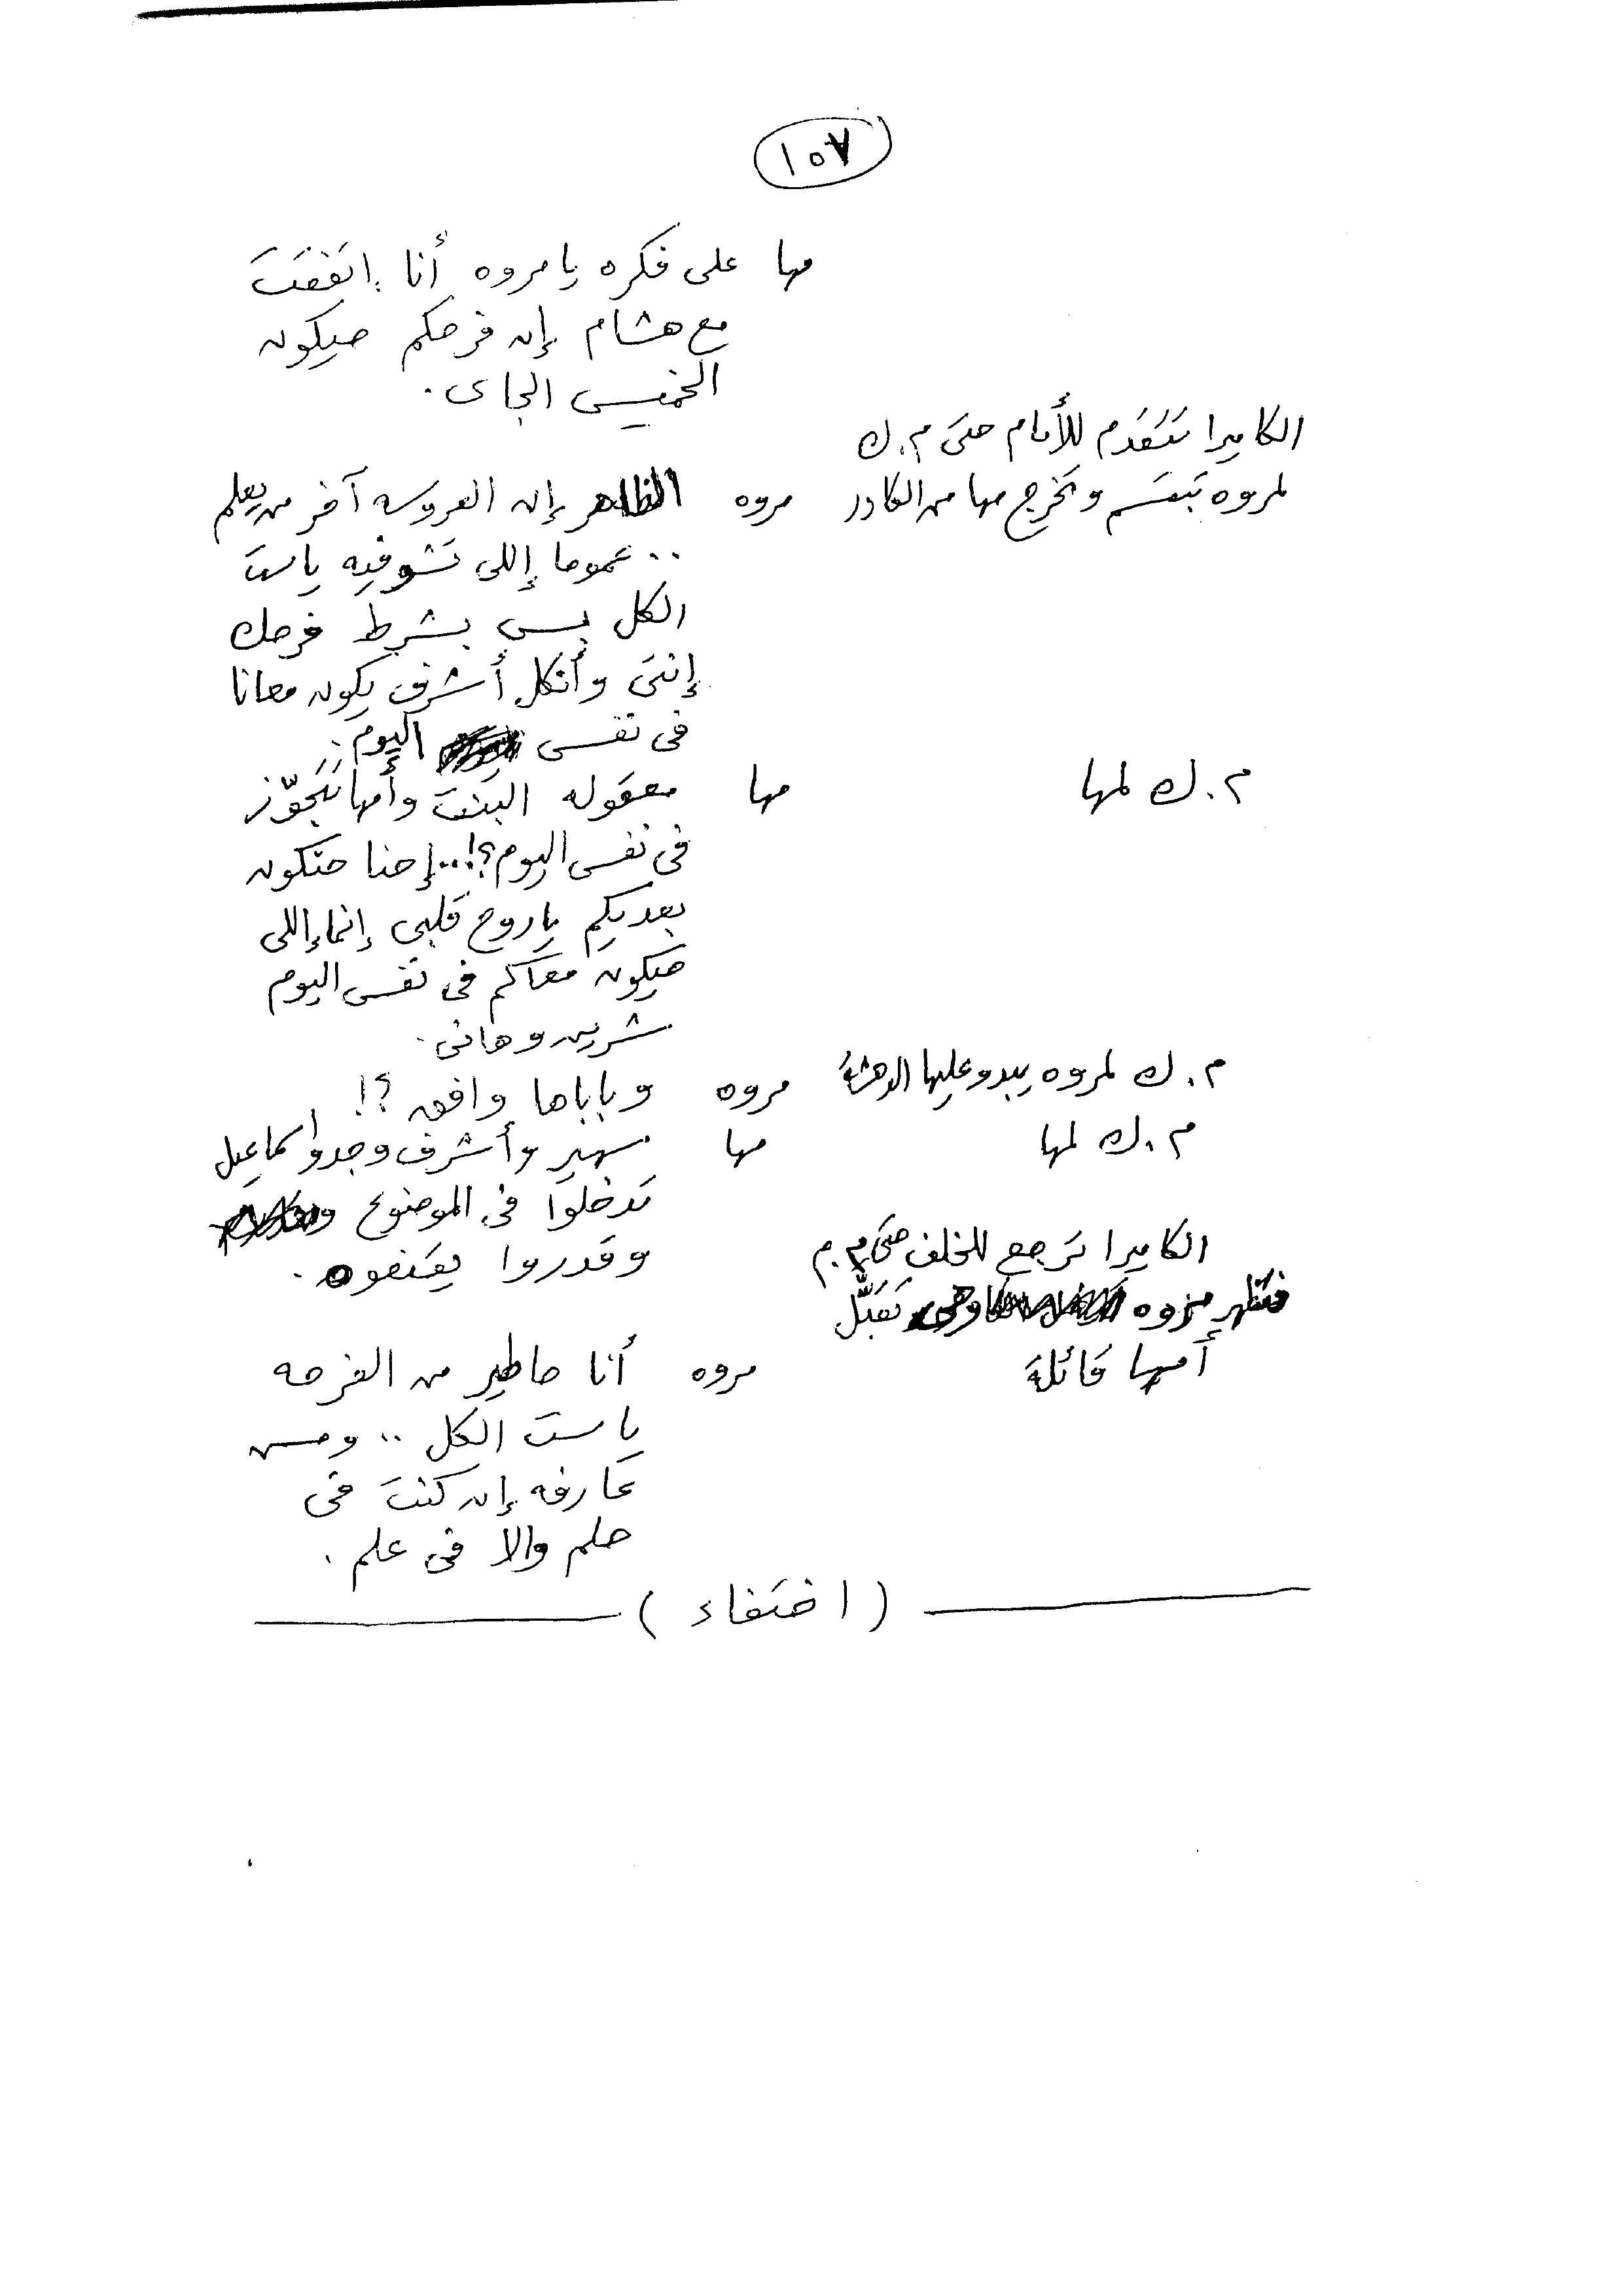 ١٥٧
مها على فكره يا مروه أنا إتفقت
مع هشام إن فرحكم حيكون
الخميس الجاى .
الكاميرا تتقدم للأمام حتى م. ك
لمروه تبتسم وتخرج مها من الكادر مروه الظاهر إن العروسه آخر من يعلم
.. عموما إللى تشوفيه يا ست
الكل بس بشرط فرحك
إنتى وأنكل أشرف يكون معانا
فى نفس اليوم .
م. ك لمها مها معقوله البنت وأمها تتجوّز
فى نفس اليوم ؟! .. إحنا حنكون
بعديكم يا روح قلبى إنما إللى
حيكون معاكم فى نفس اليوم
شرين وهانى .
م. ك لمروه يبدو عليها الدهشة مروه وباباها وافق ؟!
م. ك لمها مها سهير وأشرف وجدو اسماعيل
تدخلوا فى الموضوع
وقدروا يقنعوه .
الكاميرا ترجع للخلف حتى م. م
فتظهر مروه وهى تقبّل
أمها قائلة مروه أنا حاطير من الفرحه
يا ست الكل .. ومش
عارفه إن كنت فى
حلم والا فى علم .
( اختفاء )